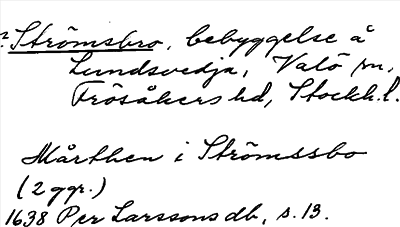 ? Strömsbro, bebyggelse å
Lundsvedja, Valö sn,
Frösåkers hd, Stockh. l.
Mårthen i Strömssbo
(2 ggr.)
1638 Per Larssons db, s. 13.